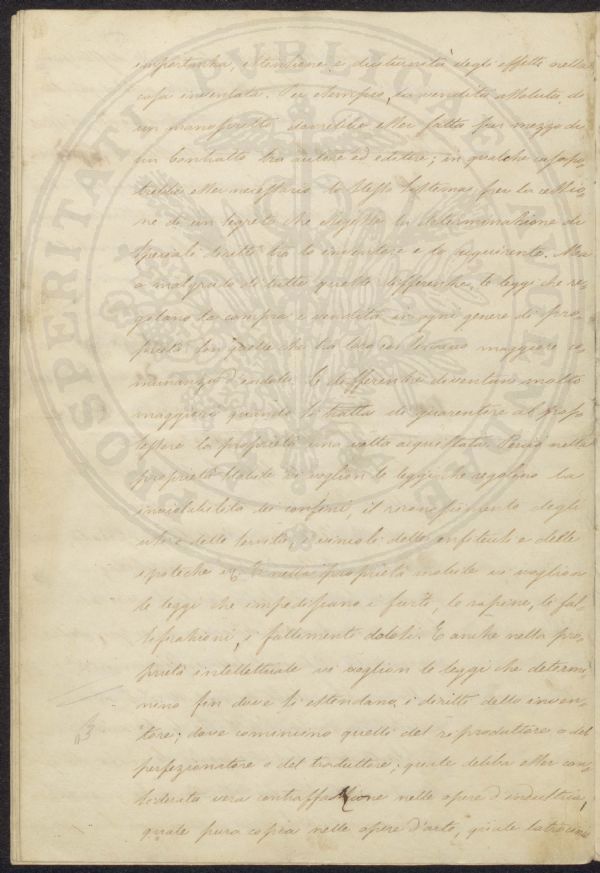 importanza, estensione e diuturnità degli effetti nella
cosa inventata. Per esempio, la vendita assoluta di
un manoscritto dovrebbe esser fatta per mezzo di
un Contratto tra autore ed editore; in qualche caso po-
trebbe esser necessario lo stesso sistema per la cessio-
ne di un segreto che esigesse la determinazione di
speciali diritti tra lo inventore e lo acquirente. Ma
a malgrado di tutte queste differenze, le leggi che re-
golano la compra e vendita in ogni genere di pro-
prietà son quelle che tra loro maggiore co-
munanza d'indole. Le differenze diventano molto
maggiori quando si tratta di guarentire al pos-
sessore la proprietà una volta acquistata. Perciò nella
proprietà stabile vi voglion le leggi che regolino la
inviolabilità dei confini, il degli
utili delle servitù, i vincoli delle enfiteusi e delle
ipoteche ec. E nella proprietà mobile vi voglion
le leggi che impediscano i furti, le rapine, le fal-
sificazioni, i fallimenti dolosi. E anche nella pro-
prietà intellettuale vi voglion le leggi che determi-
nino fin dove si estendano i diritti dello inven-
tore; dove comincino quelli del riproduttore o del
perfezionatore o del traduttore; quale debba esser con-
siderata vera contraffazione nelle opere d'industria,
quale pura copia nelle opere d'arte, quale latrocinio
PROSPERITATI PVBLICAE AVGENDAE